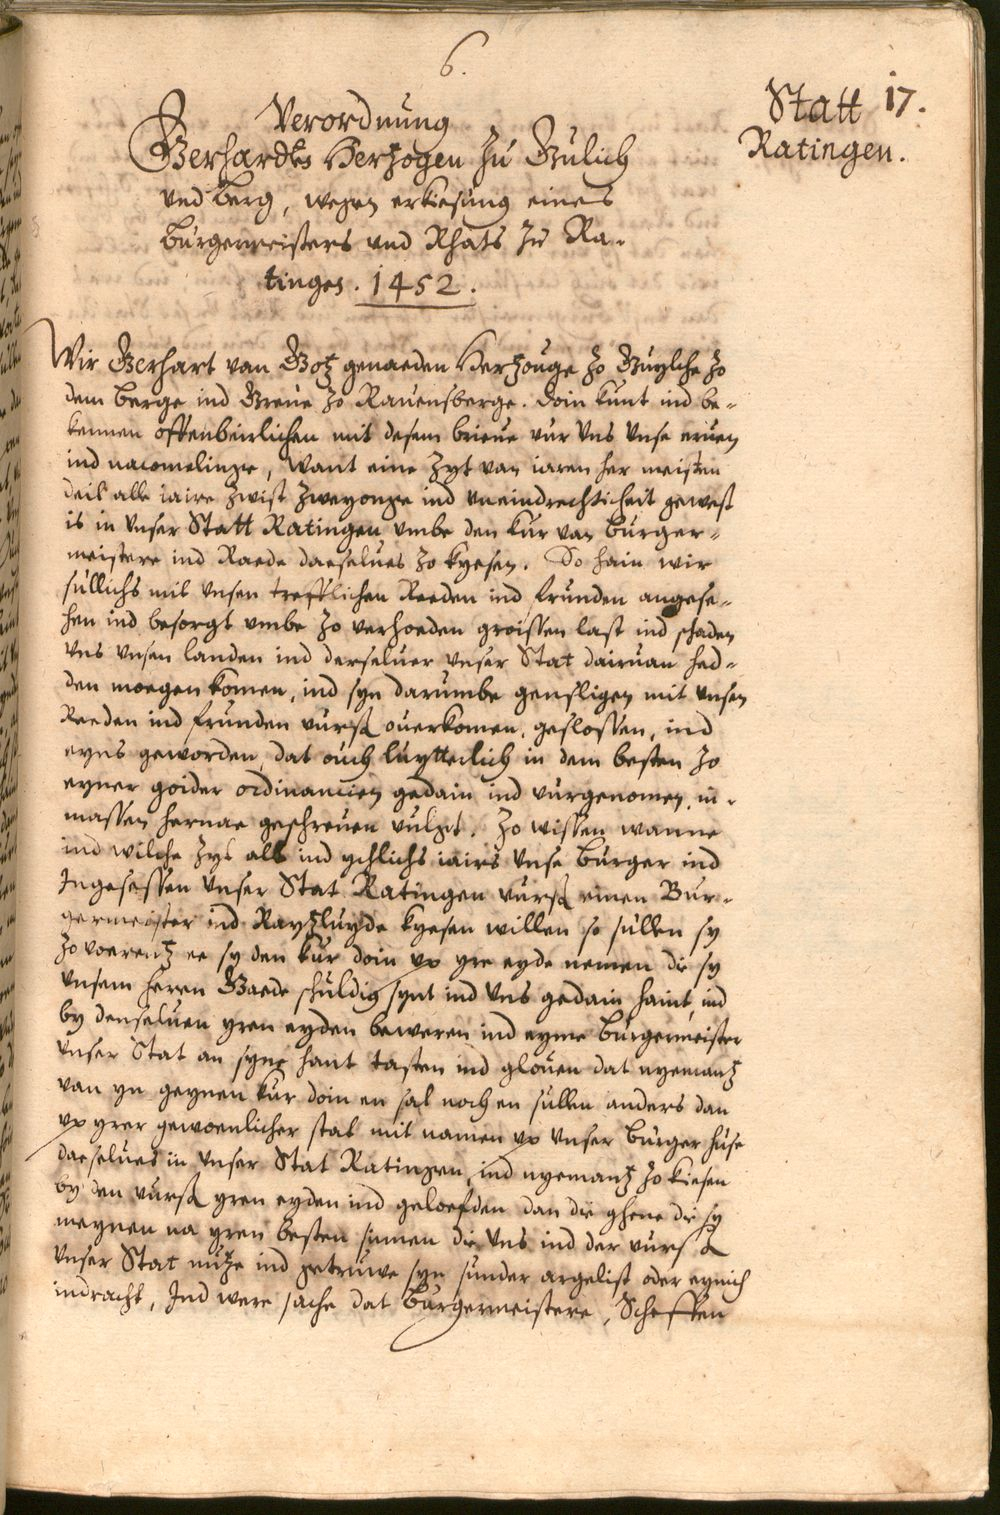 6.
Statt 17.
Ratingen.
Verordnung
Gerhardts Hertzogen zu Gulich
vnd Berg, wegen erkiesung eines
Burgemeisters vnd Rhats zu Ra-
tingen. 1452.
Wir Gerhart van Gotz genaeden Hertzouge zo Guylche zo
dem Berge ind Greue zo Rauensberge. Doin kunt ind be-
kennen offenbeirlichen mit desem brieue vur Vns Vnse eruen
ind nacomelinge, Want eine zyt van iaren her meisten
deil alle iaire zwist zweyonge ind vneindrechticheit gewest
is in Vnser Statt Ratingen vmbe den kur van Burger-
meistere ind Raede daeselues zo kyesen. So hain wir
sullichs mit Vnsen trefflichen Reeden ind frunden angese-
hen ind besorgt vmbe zo verhoeden groissen last ind schaden
Vns Vnsen landen ind derseluer Vnser Stat dairuan hed-
den moegen komen, ind syn darumbe gensligen mit Vnsen
Reeden ind frunden vurß ouerkomen, geslossen, ind
eyns geworden, dat ouch luytterlich in dem besten zo
eyner goider ordinancien gedain ind vurgenomen, in-
massen hernae geschreuen vulgt. Zo wissen wanne
ind wilche zyt alle ind ychlichs iairs Vnse Burger ind
Ingesessen Vnser Stat Ratingen vurß einen Bur-
germeister ind Raytzluyde kyesen willen so sullen sy
zo voerentz ee sy den kur doin vp yre eyde nemen die sy
Vnsem herrn Gaede schuldig synt ind Vns gedain haint, ind
by denseluen yren eyden beweren ind eyme Burgermeister
Vnser Stat an syne hant tasten ind glouen dat nyemantz
van yn geynen kur doin en sal noch en sullen anders dan
vp yrer gewoenlicher stat mit namen vp Vnser Burger huse
daeselues in Vnser Stat Ratingen, ind nyemantz zo kiesen
by den vurß yren eyden ind geloefden dan die ghene die sy
meynen na yren besten sinnen die Vns ind der vurß
Vnser Stat nutze ind getruwe syn sunder argelist oder eynich
indracht, Ind were sache dat Burgermeistere, Scheffen